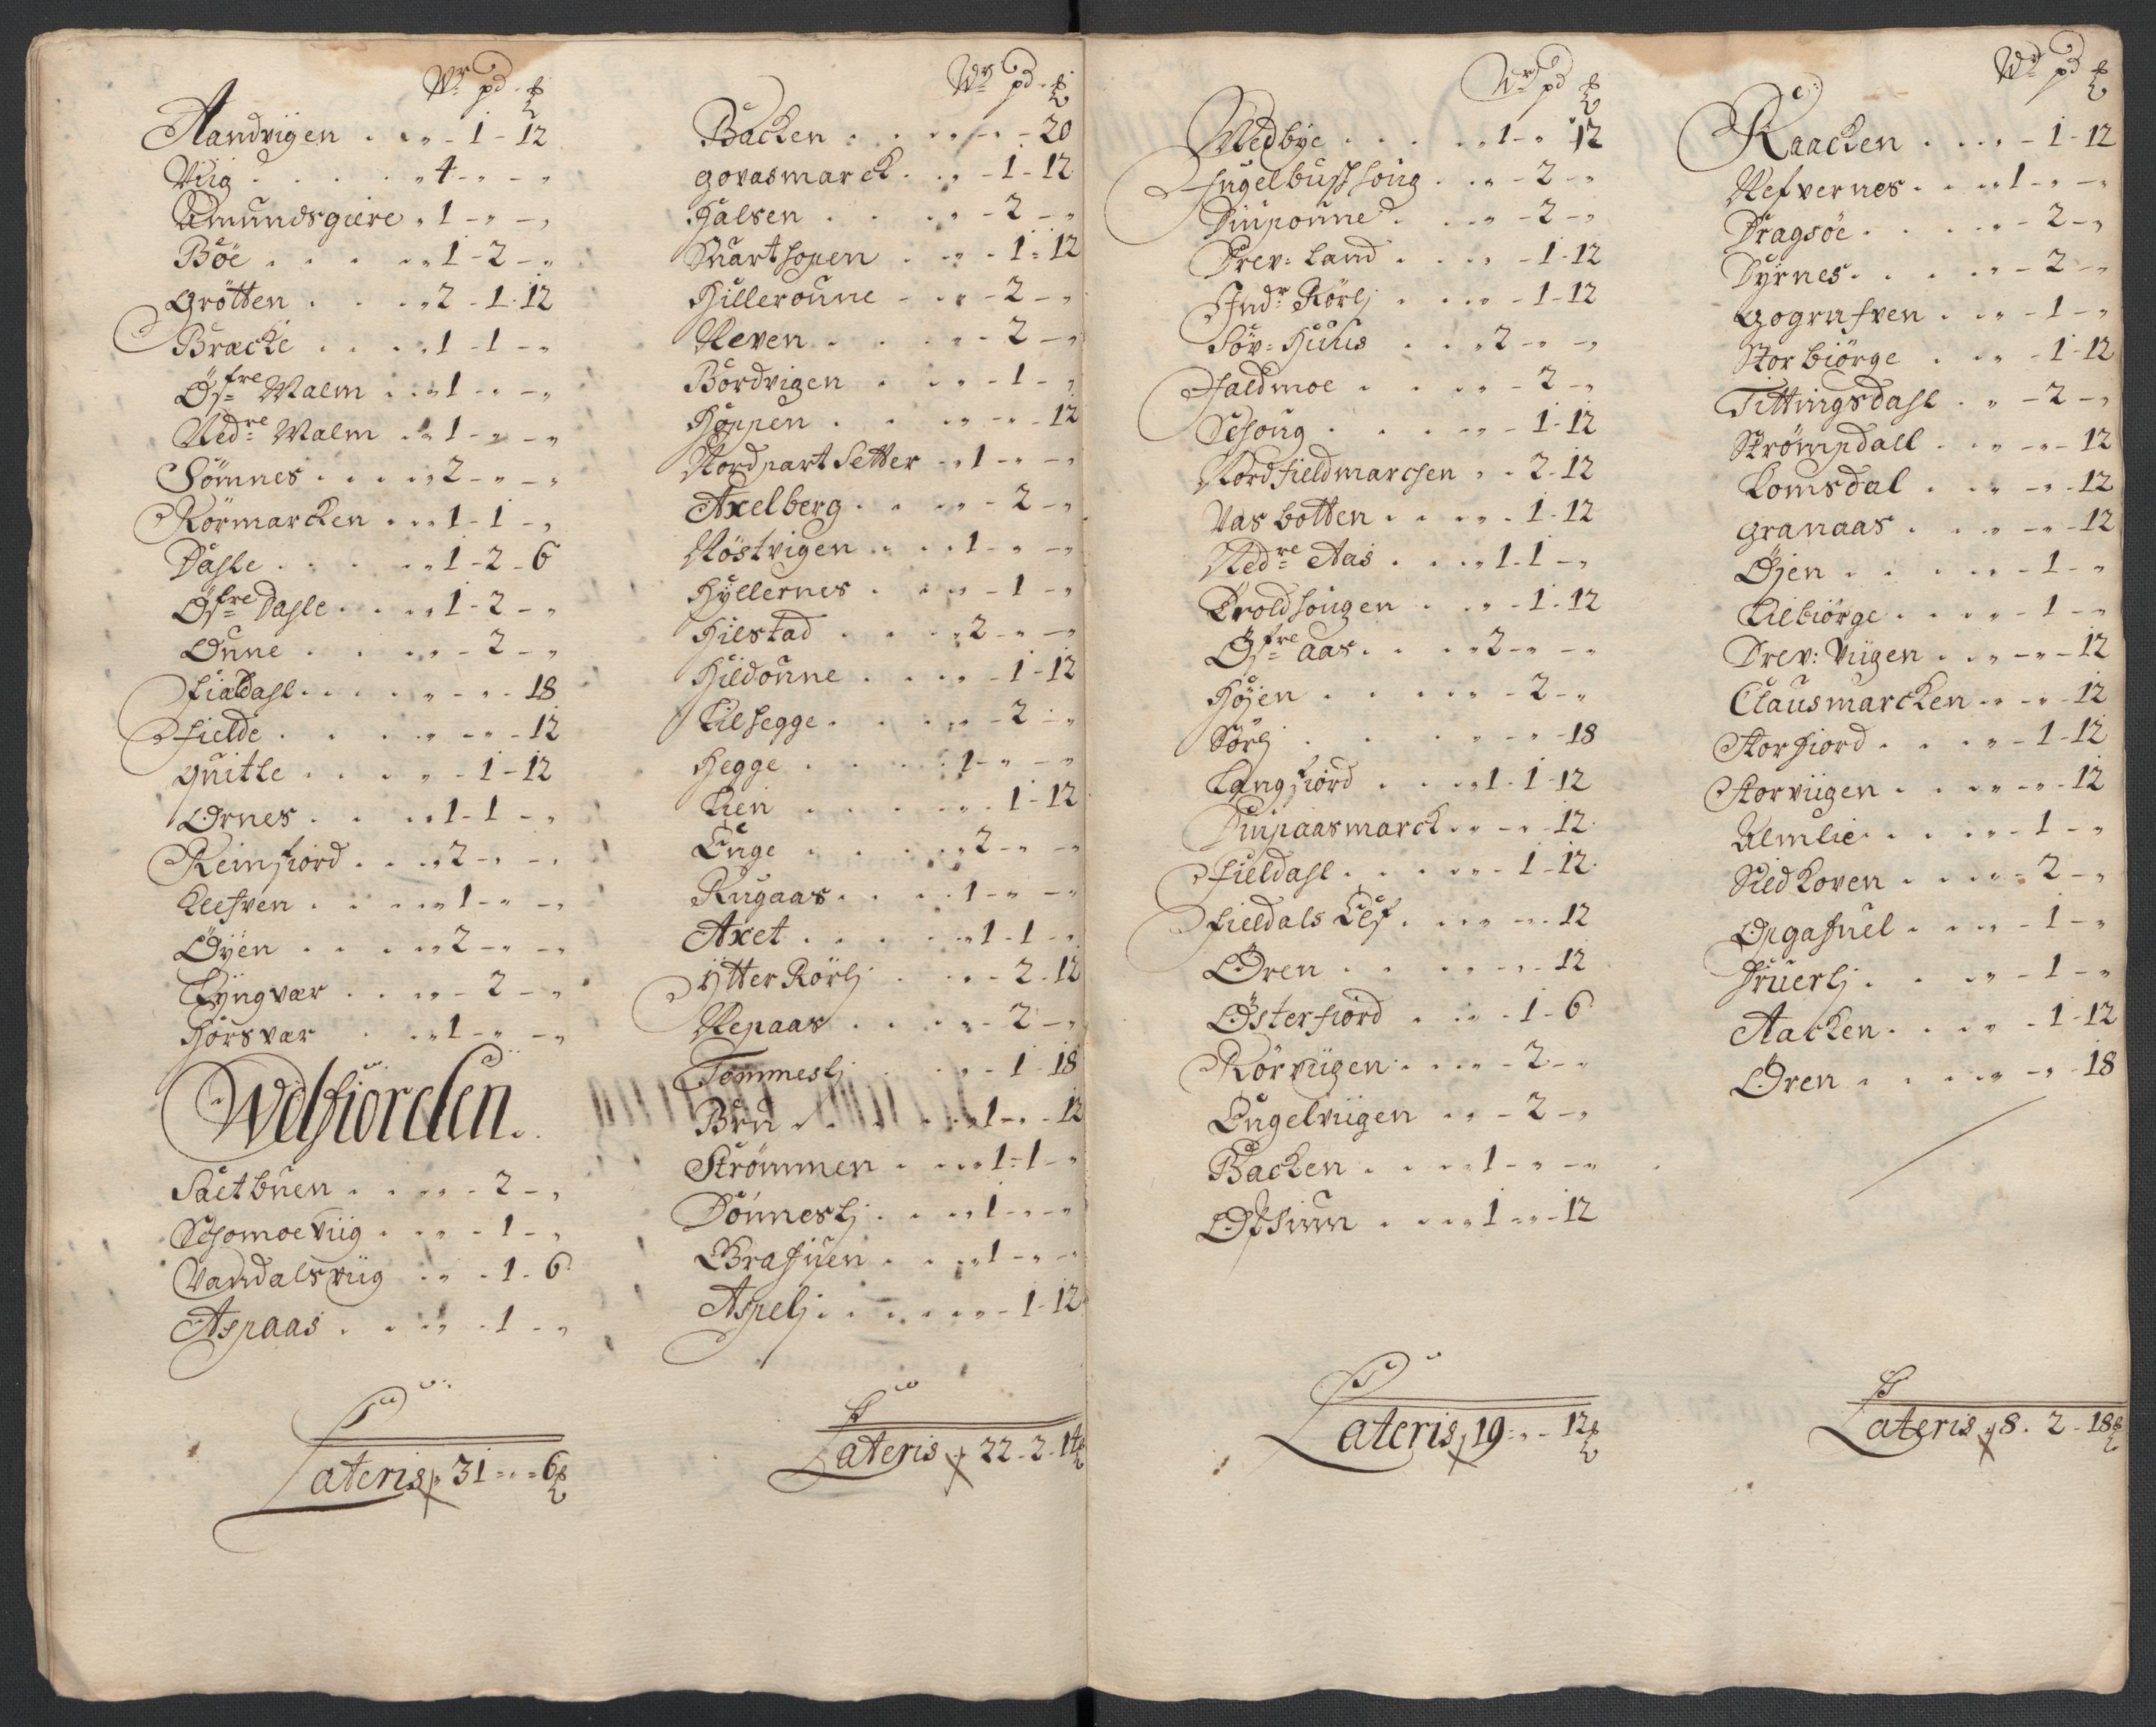 Wr pd ℔
Aandvigen . . „ - 1 - 12
Viig . . . . „ 4 - „ - „
Amundsgiere „ 1 - „ - „
Böe . . . . „ 1 - 2 - „
Grötten . . . „ 2 - 1 - 12
Bracke . . . „ 1 - 1 - „
Öfre Malm . . „ 1 - „ - „
Nedre Malm . „ 1 - „ - „
Sömnes . . . . „ 2 - „ - „
Rörmarcken . . „ 1 - 1 - „
Dahle . . . . „ 1 - 2 - 6
Öfre Dahle . . . „ 1 - 2 - „
Önne . . . „ - 2 - „
Fialdahl . . . . „ - „ - 18
Fielde . . . . „ - „ - 12
Quitle . . . . „ - 1 - 12
Ornes . . . „ 1 - 1 - „
Reinfiord . . . „ 2 - „ - „
Klefven . . . „ 1 - „ - „
Öyen . . . . „ 2 - „ - „
Lyngvær . . „ - 2 - „
Horsvær . . „ 1 - „ - „
Welfiorden.
Saltbuen . . . „ - 2 - „
Schomoeviig . . „ - 1 - „
Vandalsviig . . „ - 1 - 6
Aspaas . . . „ - 1 - „
Lateris „ 31 - „ - 6 ℔
Wr pd ℔
Backen . . . . „ - „ - 20
Govasmarck . . „ - 1 - 12
Halsen . . . . „ - 2 - „
Suarthopen . . „ - 1 - 12
Hilleroune - . „ - 2 - „
Neven . . . . „ - 2 - „
Bordvigen . . „ - 1 - „
Hoppen . . . „ - „ - 12
Nordpart Setter „ 1 - „ - „
Axelberg . . . „ - 2 - „
Nöstvigen . . „ 1 - „ - „
Hyllernes . . . „ - 1 - „
Hilstad . . . „ 2 - „ - „
Hildonne . . . „ - 1 - 12
Lilhegge . . . „ - 2 - „
Hegge . . . . „ 1 - „ - „
Lien . . . . „ - 1 - 12
Enge . . . . „ 2 - „ - „
Rugaas . . . „ 1 - „ - „
Axet . . . . „ 1 - 1 - „
Ytter Rörlj . . „ - 2 - 12
Nepaas . . . . „ - 2 - „
Tommeslj . . „ - 1 - 18
Brü . . . . „ 1 - „ - 12
Strömmen . . . „ 1 - 1 - „
Dönneslj . . . „ 1 - „ - „
Grafüen . . . „ 1 - „ - „
Aspelj . . . . „ - 1 - 12
Lateris „ 22 - 2 - 14 ℔
Wr pd ℔
Nedbye . . . . „ 1 - „ 12
Ingelbusshoug . . „ - 2 - „
Diuponne . . . „ - 2 - „
Drev: Land . . „ - 1 - 12
Indr Rörlj . . . „ - 1 - 12
Söv: Huus . . . „ 2 - „ - „
Faldmoe . . . „ - 2 - „
Sehoug . . . . „ - 1 - 12
Nordfieldmarchen „ . 2 - 12
Vasbotten . . . „ - 1 - 12
Nedre Aas . . . „ 1 - 1 - „
Troldhougen . . „ - 1 - 12
Öfre aas . . . „ 2 - „ - „
Höjen . . . . „ - 2 - „
Sörlj . . . . „ - „ - 18
Langfiord . . . „ 1 - 1 - 12
Diupaasmarck . „ - „ - 12
Fieldahl . . . . „ - 1 - 12
Fieldals Elf . . „ - „ - 12
Oren . . . . „ - „ - 12
Österfiord . . „ - 1 - 6
Rörviigen . . . „ - 2 - „
Engelviigen . . „ - 2 - „
Backen . . . . „ 1 - „ - „
Othium . . . „ 1 - „ - 12
Lateris „ 19 - „ - 12 ℔
Wr pd ℔
Raacken . . . „ - 1 - 12
Nefvernes . . . „ 1 - „ - „
Dragsöe . . . . „ - 2 - „
Dyrnes . . . . „ - 2 - „
Gografven . . „ - 1 - „
Storbiörge . . „ - 1 - 12
Tittingsdahl . „ - 2 - „
Strömpdall . . „ - „ - 12
Lomsdal . . „ - „ - 12
Granaas . . . „ - „ - 12
Öjen . . . . „ - 1 - „
Lilbiörge . . . „ - 1 - „
Drev: Viigen . . „ - „ - 12
Clausmarcken . . „ - „ - 12
Storfiord . . . „ - 1 - 12
Storviigen . . . „ - „ - 12
Almlie . . . . „ - 1 - „
Sildkoven . . . „ - 2 - „
Opgafuel . . . „ - 1 - „
Fruerlj . . . „ - 1 - „
Aacken . . . „ - 1 - 12
Oren . . . . „ - „ - 18
Lateris „ 8 - 2 - 18 ℔